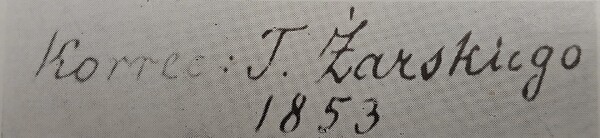 Korrec: T. Żarskiego
1853